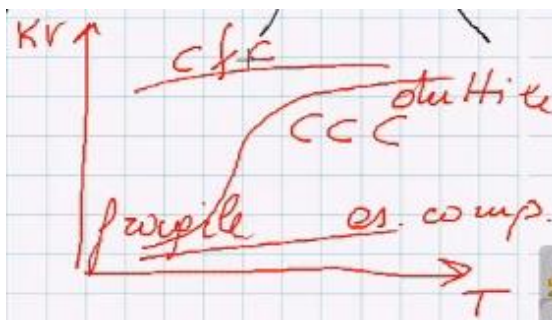 KV
CfC
duttile
CCC
fragile es. comp.
T